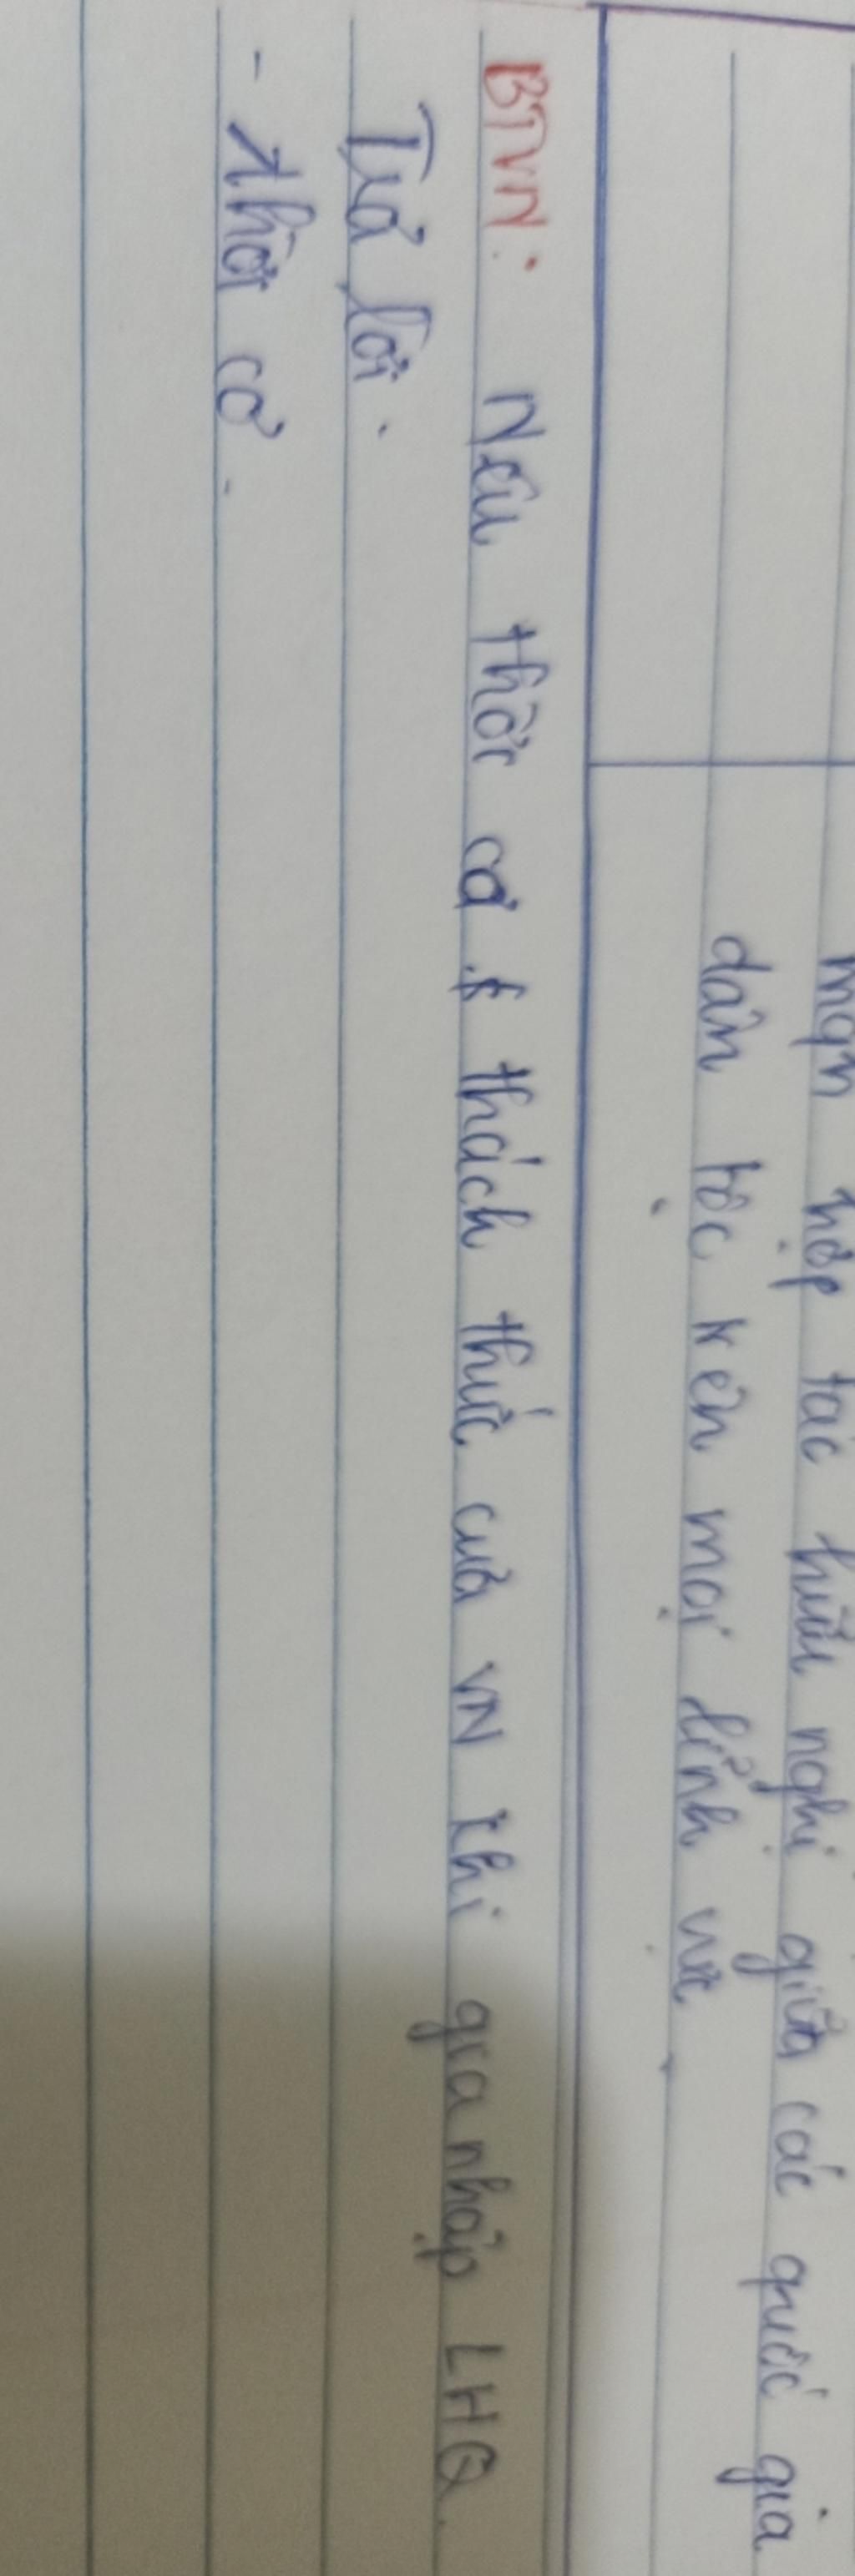 mạn hợp tác hữu nghị giữa các quốc gia
dân tộc trên mọi lĩnh vực.
BTVN: Nêu thời cơ & thách thức của VN khi gia nhập LHQ.
Trả lời.
- Thời cơ.